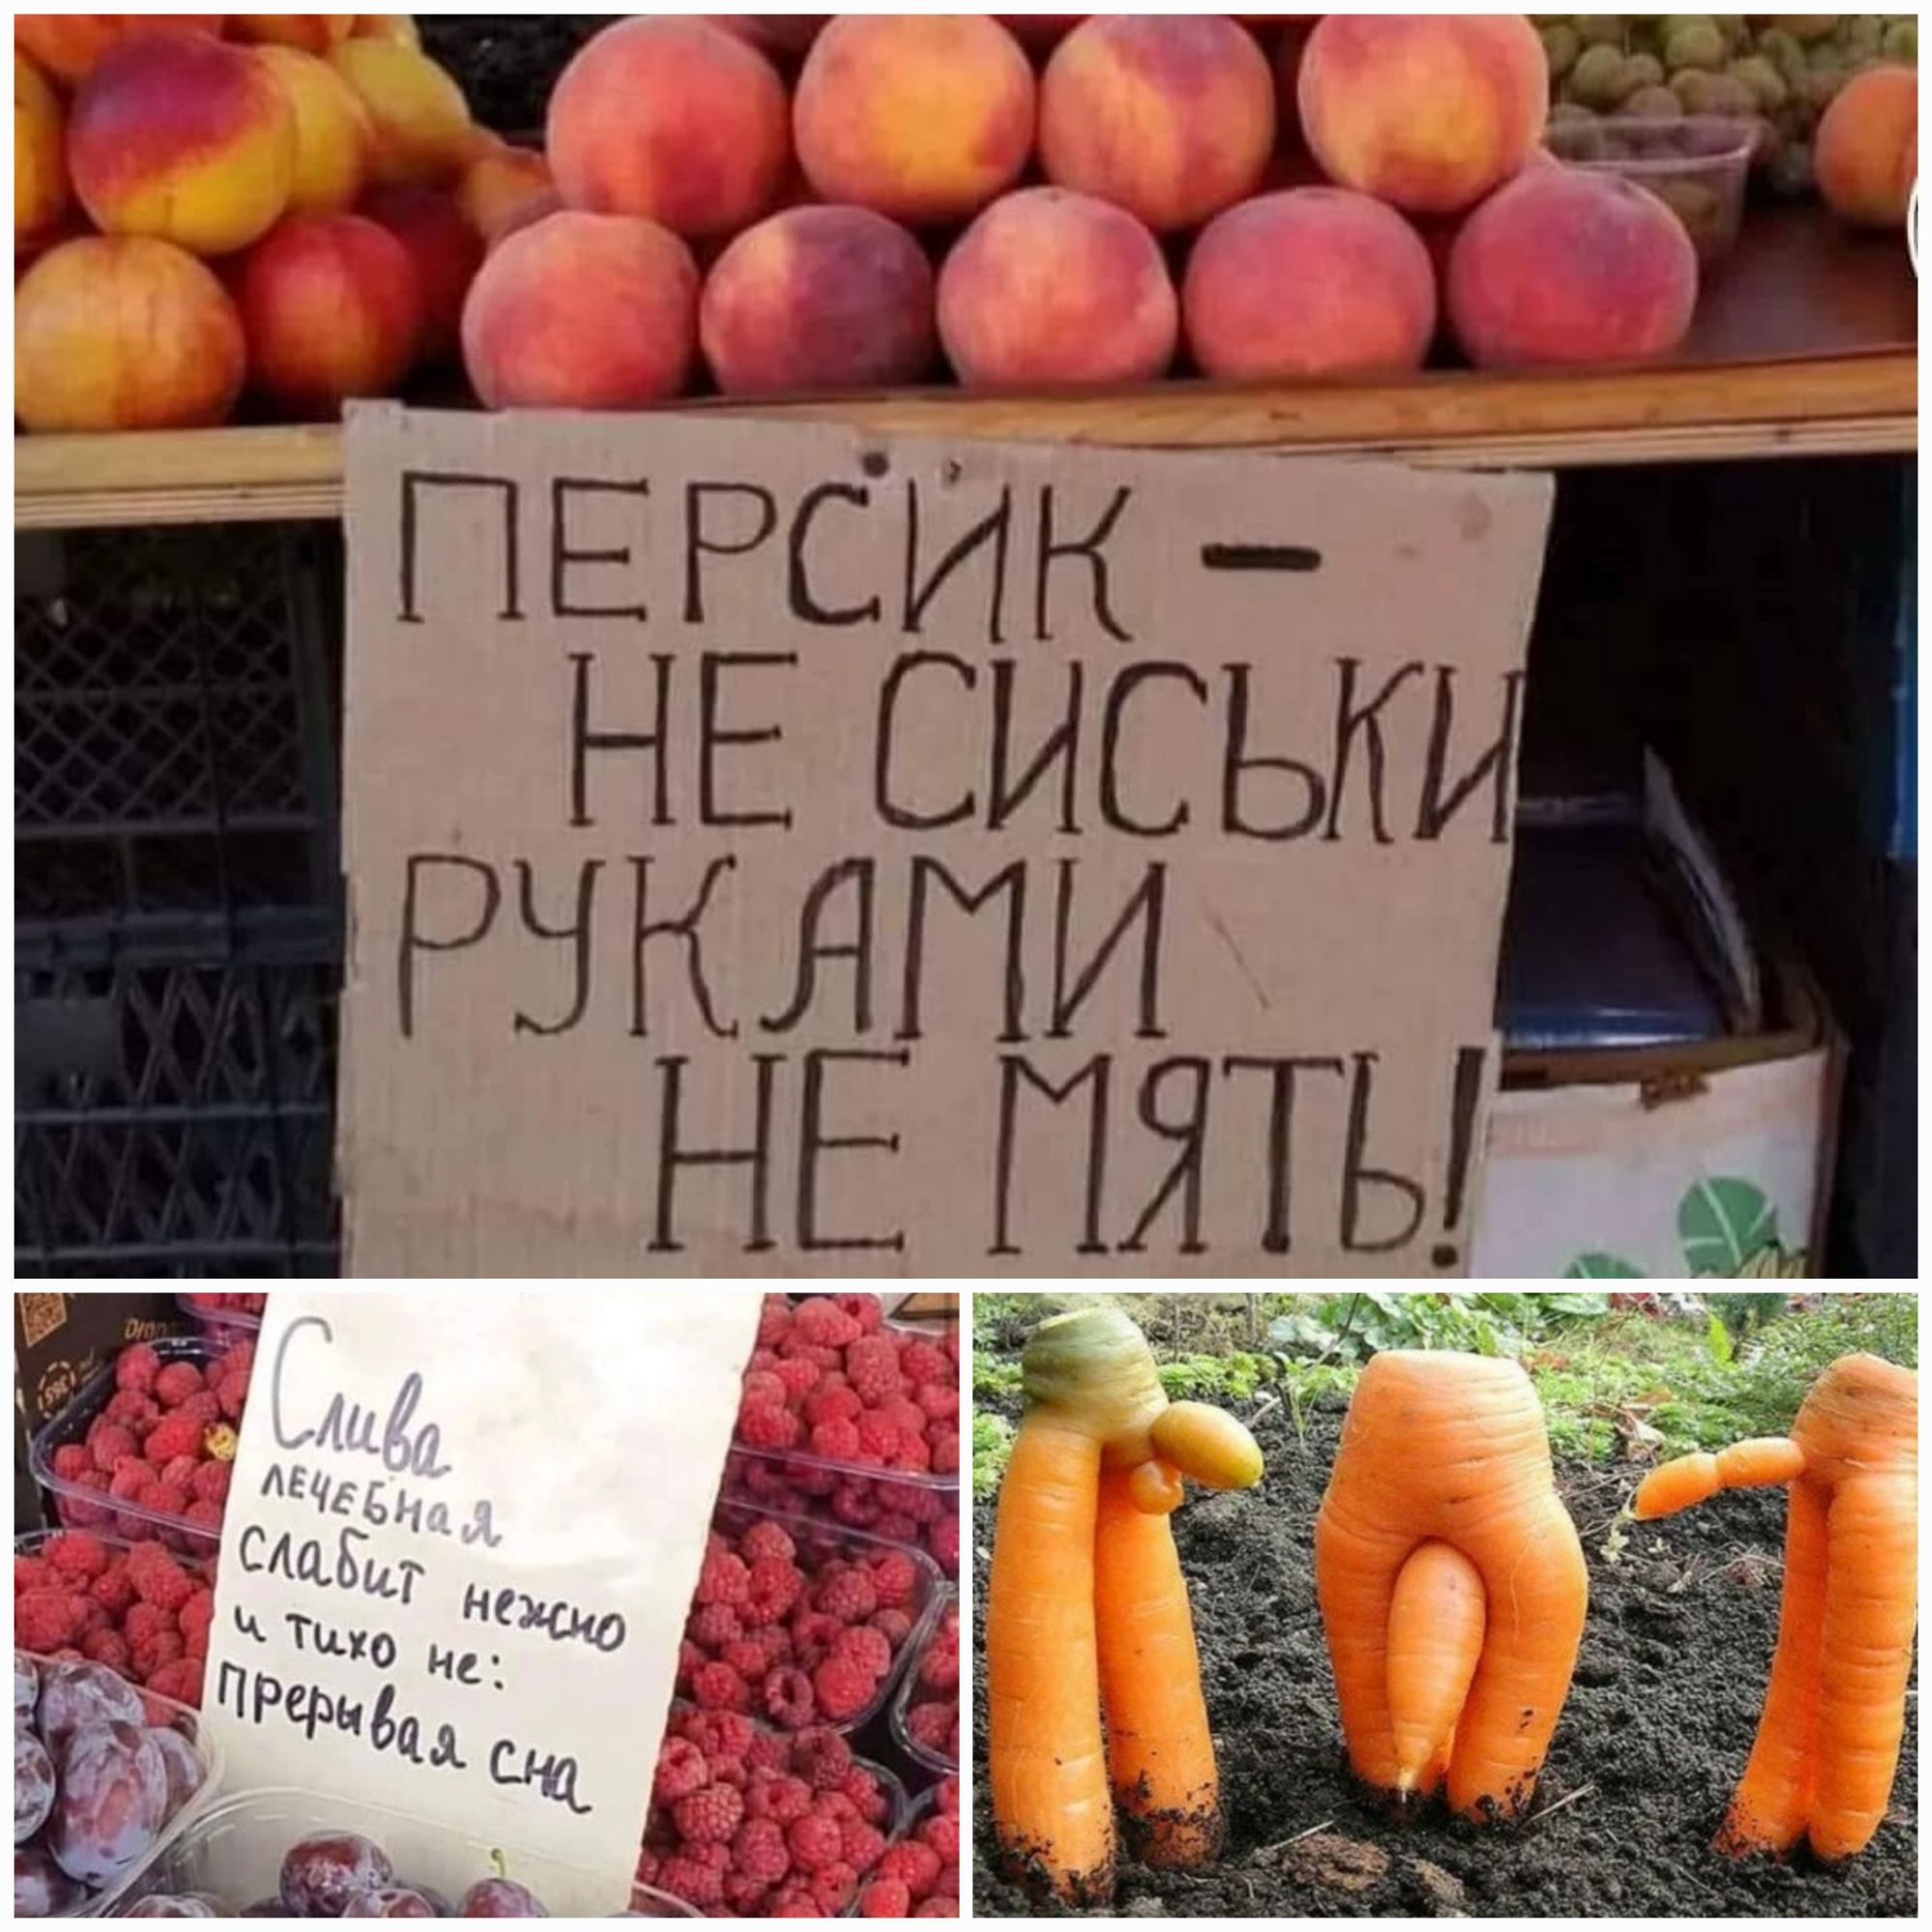 ПЕРСИК -
НЕ СИСЬКИ
РУКАМИ
НЕ МЯТЬ!
Слива
ЛЕЧЕБНАЯ
слабит нежно
и тихо не:
прерывая сна